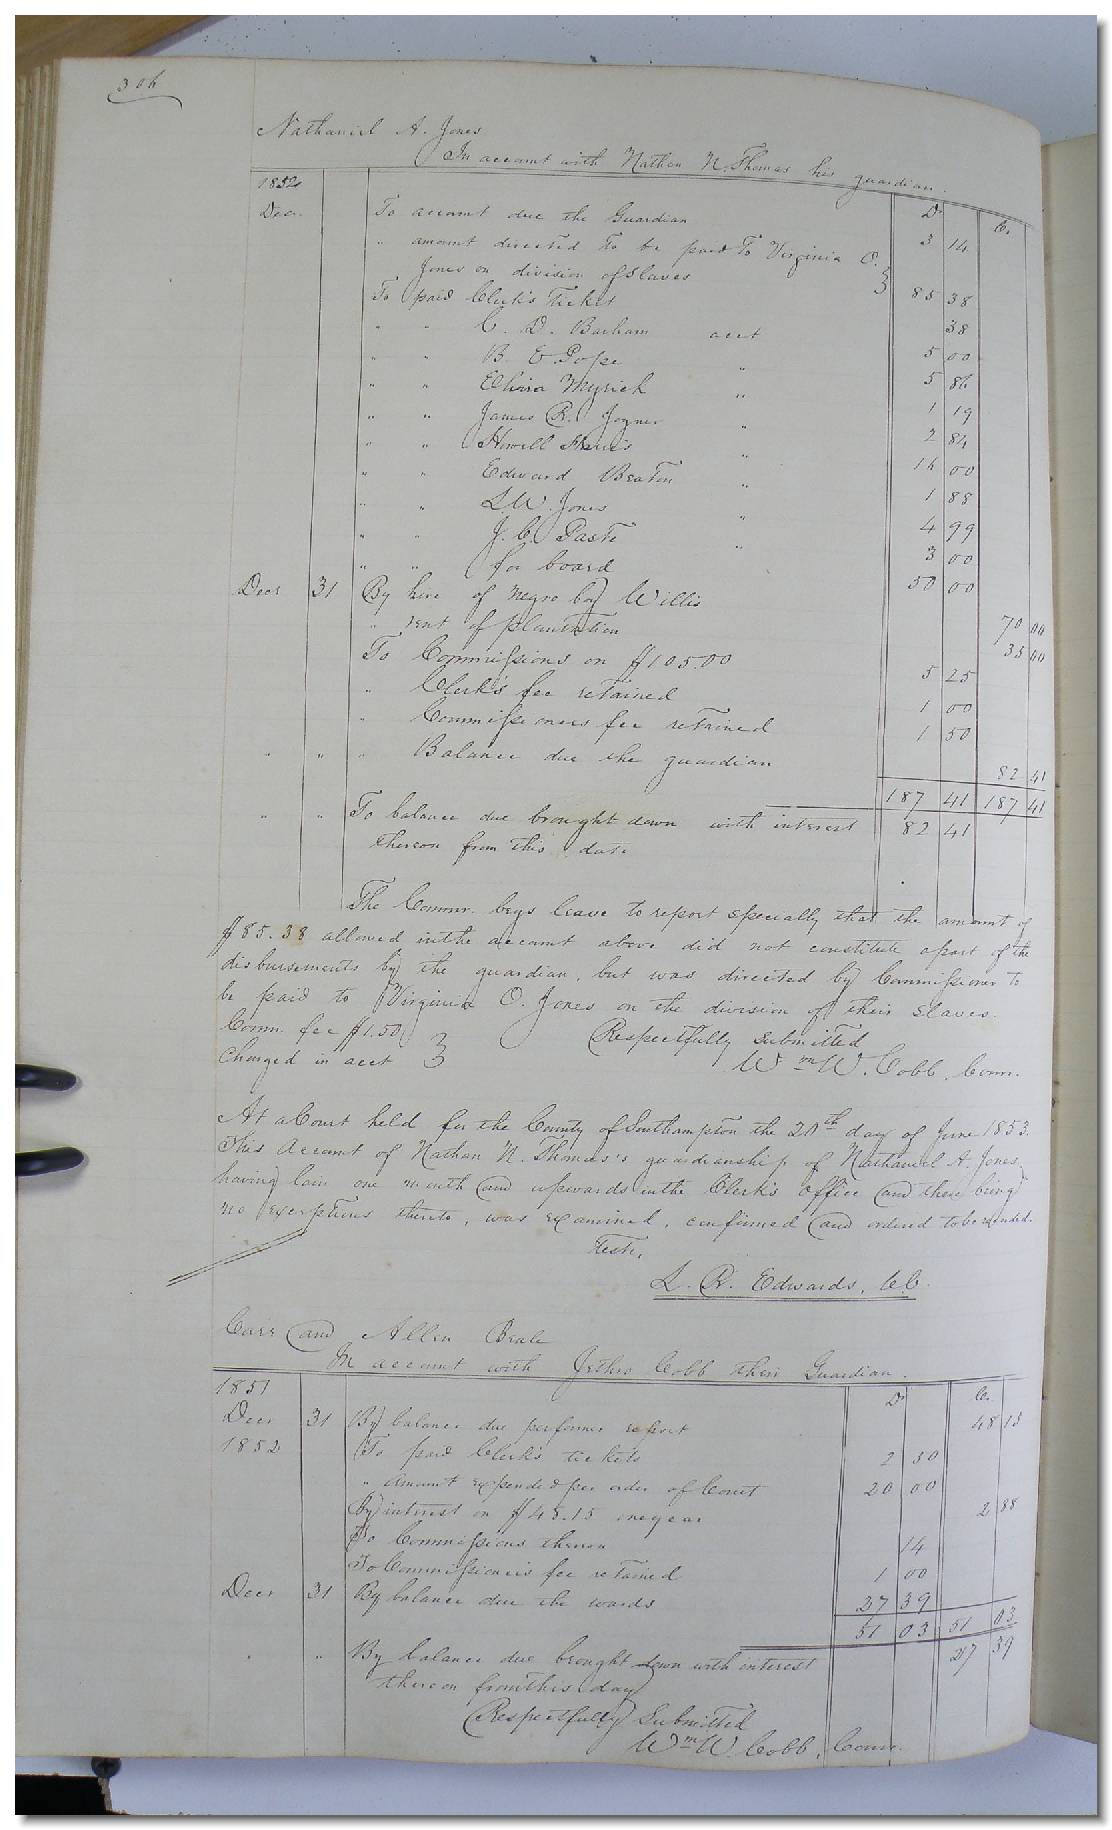 306
Nathaniel A. Jones
In account with Nathan N. Thomas his guardian.
1852 Dr. Cr.
Decr. To account due the Guardian 3 14
" amount directed to be paid to Virginia O.
Jones on division of Slaves } 85 38
To paid Clerk's Ticket 38
" " C. D. Barham acct 5 00
" " B. E Pope " 5 86
" " Eliza Myrick " 1 19
" " James R. Joyner " 2 84
" " Howell " 16 00
" " Edward Beaton " 1 88
" " L. W. Jones " 4 99
" " J. C. " 3 00
" " for board 50 00
Decr 31 By hire of negro boy Willis 70 00
" rent of plantation 35 00
To Commissions on $105.00 5 25
" Clerk's fee retained 1 00
" Commissioners fee retained 1 50
" " " Balance due the guardian 82 41
187 41 187 41
" " To balance due brought down with interest 82 41
thereon from this date
The Commr. begs leave to report specially that the amount of
$85.38 allowed in the account above did not constitute a part of the
disbursements by the guardian, but was directed by Commissioner to
be paid to Virginia O. Jones on the division of their slaves.
Comm. fee $1.50 } Respectfully submitted
Charged in acct Wm W. Cobb, Comr.
At a Court held for the County of Southampton the 20th day of June 1853.
This Account of Nathan N. Thomas's guardianship of Nathaniel A. Jones
having lain one month and upwards in the Clerk's office and there being
no exceptions thereto, was examined, confirmed and ordered to be recorded.
Teste,
L. R. Edwards, C.C.
Carr and Allen Beale
In account with Jethro Cobb their Guardian.
1851 Dr Cr.
Decr 31 By balance due per former report 48 15
1852 To paid Clerk's tickets 2 50
" Amount expended per order of Court 20 00
By interest on $48.15 one year 2 88
To Commissions thereon 14
To Commissioner's fee retained 1 00
Decr 31 By balance due the wards 27 39
51 03 51 03
" " By balance due brought down with interest 27 39
thereon from this day
Respectfully Submitted
Wm W. Cobb, Comr.